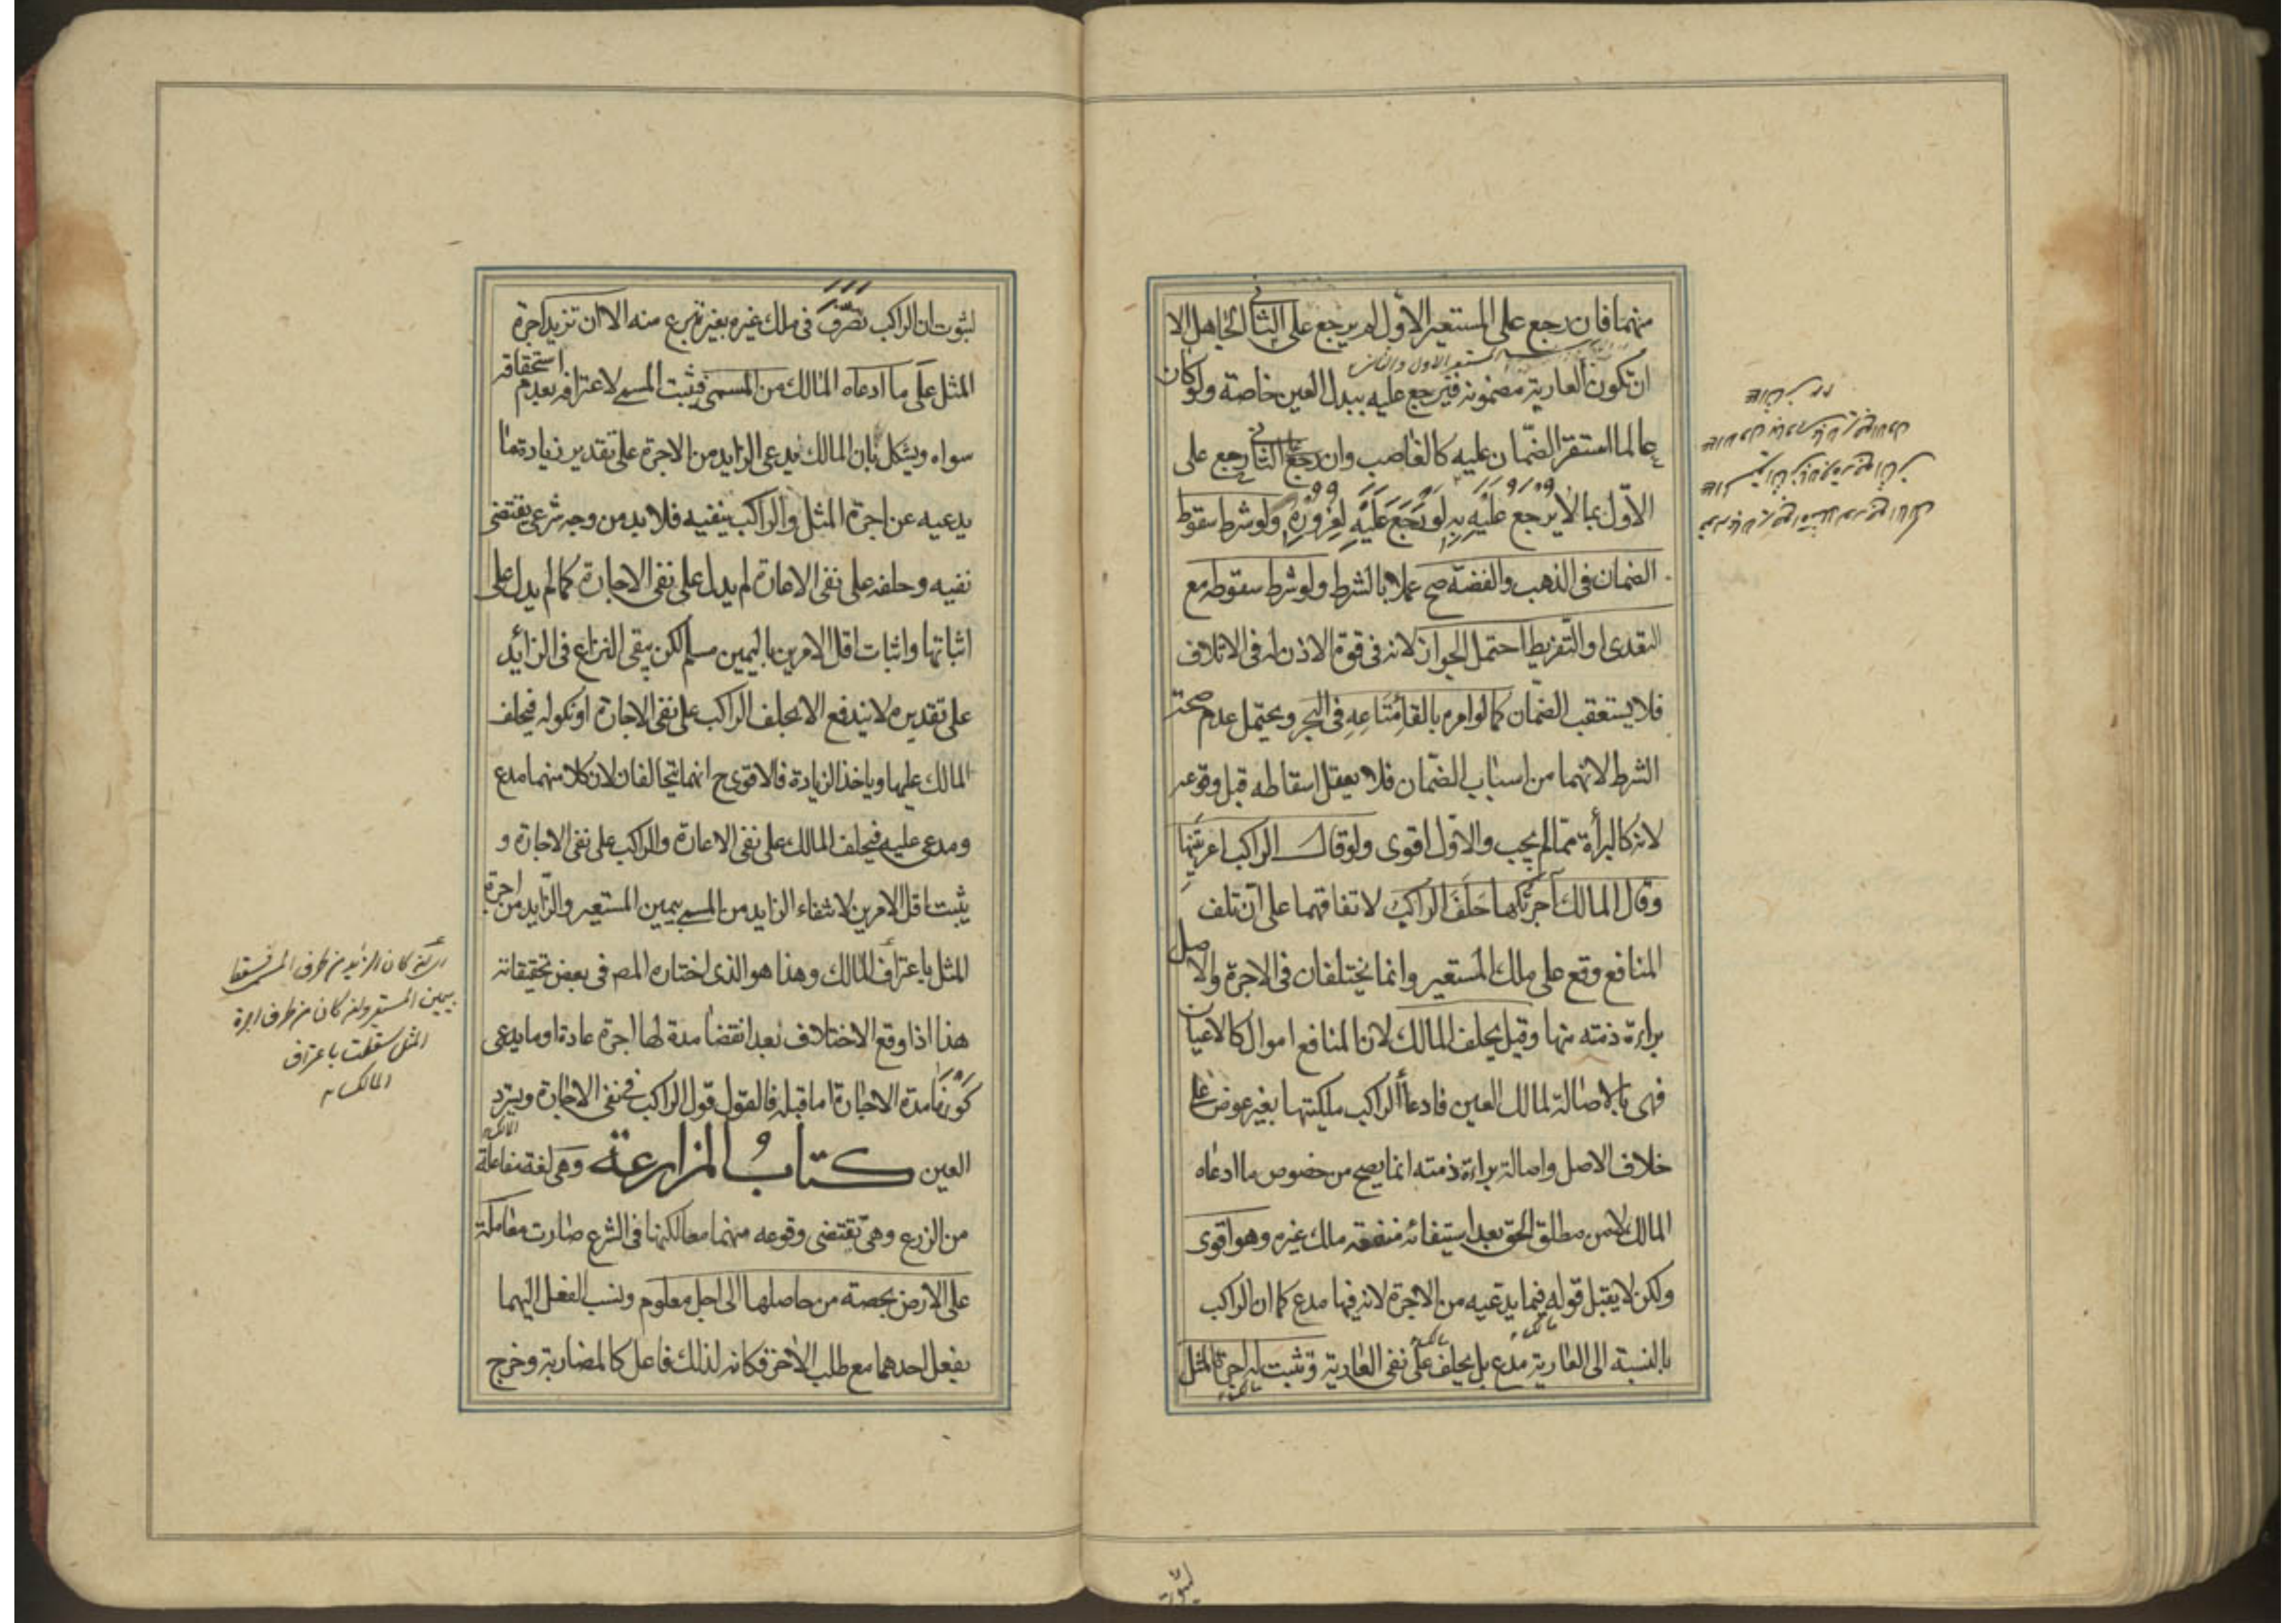 منهما فان رجع على المستعير الاوّل لم يرجع على الثاني الجاهل الا
المستعير الاول والثانى
ان تكون العارية مضمونة فيرجع عليه ببدل العين خاصة ولو كان
عالما استقر الضّمان عليه كالغاصب وان رجع على الثاني رجع على
الاوّل بما لا يرجع عليه به لو رَجَعَ عَلَيْهِ لِغُرُورِهِ ولو شرط سقوط
الضمان فى الذهب والفضّة صح عملا بالشرط ولو شرط سقوطه مع
التعدى او التّفريط احتمل الجواز لانه فى قوة الاذن له فى الاتلاف
فلا يستعقب الضمان كما لو امره بالقاءِ مَتَاعِهِ فى البَحر ويحتمل عدم صحة
الشرط لانهما من اسباب الضّمان فلا يعقل اسقاطه قبل وقوعه
لانه كالبرأة ممّا لم يجب والاوّل اقوى ولو قال الراكب اعرتَنِيها
وقال المالك آجَرْتُكها حَلَفَ الراكب لاتفاقهما على انّ تلف
المنافع وقع على ملك المستعير وانما يختلفان فى الاجرة والاصل
براءة ذمته منها وقيل يحلف المالك لان المنافع اموال كالاعيان
فهى بالاصالة لمالك العين فادعاأ الراكب ملكيتها بغير عوض على
خلاف الاصل واصالة براءة ذمته انما يصح من خصوص ما ادعاه
المالك لا من مطلق الحق بعد استيفائه منفعة ملك غيره وهو اقوى
ولكن لا يقبل قوله فيما يدعيه من الاجرة لانه فيها مدع كما ان الراكب
بالنسبة الى العارية مدع بل يحلف على نفى العارية وتثبت له اجرة المثل
لثبوت
لثبوت ان الراكب تصرّف فى ملك غيره بغير تبرع منه الا ان تزيد اجرة
المثل على ما ادعاه المالك من المسمى فيثبت المسمى لاعترافه بعدم استحقاقه
سواه ويشكل بان المالك يدعى الزايد من الاجرة على تقدير زيادتها
يدعيه عن اجرة المثل والراكب ينفيه فلا بد من وجه شرعى يقتضى
نفيه وحلفه على نفى الاعارة لم يدل على نفى الاجارة كما لم يدل على
اثباتها واثبات اقل الامرين باليمين مسلم لكن يبقى النزاع فى الزائد
على تقديره لا يندفع الا بحلف الراكب على نفى الاجارة او نكوله فيحلف
المالك عليها وياخذ الزيادة فالاقوى ح انهما يتحالفان لان كلا منهما مدع
ومدعى عليه فيحلف المالك على نفى الاعارة والراكب على نفى الاجارة و
يثبت اقل الامرين لانتفاء الزايد من المسمى بيمين المستعير والزّايد من اجرة
المثل باعتراف المالك وهذا هو الذى اختاره المص فى بعض تحقيقاته
هذا اذا وقع الاختلاف بعد انقضا مدة لها اجرة عادة او ما يدعى
كونها مدة الاجارة اما قبله فالقول قول الراكب فى نفى الاجارة ويسترد
المالك
العين كتابُ المزارعة وهى لغة مفاعلة
من الزرع وهى تقتضى وقوعه منهما معا لكنها فى الشرع صارت معاملة
على الارض بحصة من حاصلها الى اجل معلوم ونسب الفعل اليهما
بفعل احدهما مع طلب الآخر فكانه لذلك فاعل كالمضاربة وخرج
كان الزايد من طرف المسمى سقط
بيمين المستعير وان كان من طرف اجرة
المثل سقطت باعتراف
المالك